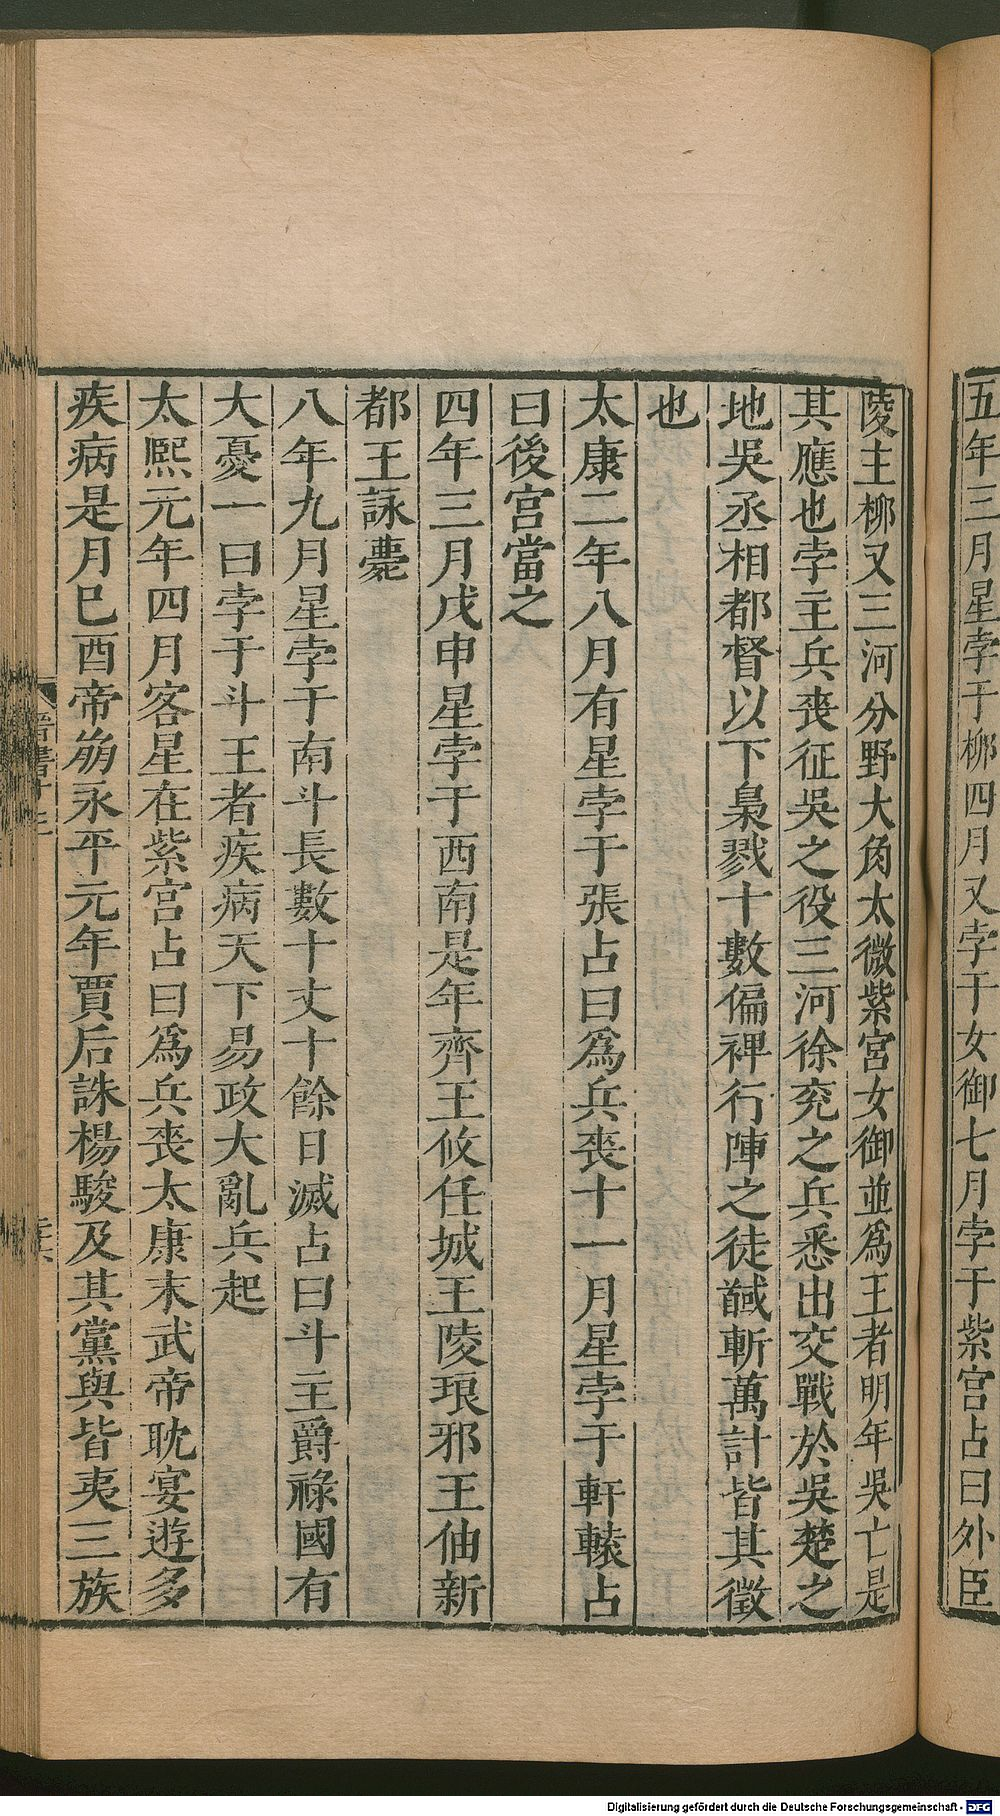 五年三月星孛于柳四月又孛于女御七月孛于紫宮占曰外臣
陵主柳又三河分野大角太微紫宮女御並爲王者明年吳亡是
其應也孛主兵喪征吳之役三河徐兖之兵悉出交戰於吳楚之
地吳丞相都督以下梟戮十數偏裨行陣之徒馘斬萬計皆其徵
也
太康二年八月有星孛于張占曰爲兵喪十一月星孛于軒轅占
曰後宮當之
四年三月戊申星孛于西南是年齊王攸任城王陵琅邪王伷新
都王詠薨
八年九月星孛于南斗長數十丈十餘日滅占曰斗主爵祿國有
大憂一曰孛于斗王者疾病天下易政大亂兵起
太熙元年四月客星在紫宮占曰爲兵喪太康末武帝耽宴遊多
疾病是月巳酉帝崩永平元年賈后誅楊駿及其黨與皆夷三族
晉書十三
Digitalisierung gefördert durch die Deutsche Forschungsgemeinschaft - DFG